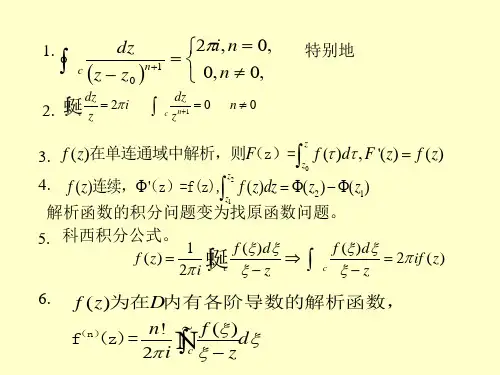 1. ∮_c dz/(z − z₀)ⁿ⁺¹ = { 2πi, n = 0, 0, n ≠ 0, 特别地
2. 蜒∫ dz/z = 2πi ∫_c dz/zⁿ⁺¹ = 0 n ≠ 0
3. f(z)在单连通域中解析，则F(z)=∫_{z₀}^{z} f(τ)dτ, F'(z) = f(z)
4. f(z)连续，Φ'(z)=f(z), ∫_{z₁}^{z₂} f(z)dz = Φ(z₂) − Φ(z₁)
解析函数的积分问题变为找原函数问题。
5. 科西积分公式。
f(z) = 1/2πi 蜒∫ f(ξ)dξ/ξ − z ⇒ ∫_c f(ξ)dξ/ξ − z = 2πif(z)
6. f(z)为在D内有各阶导数的解析函数，
f⁽ⁿ⁾(z)= n!/2πi ∮_c f(ξ)/ξ − z dξ